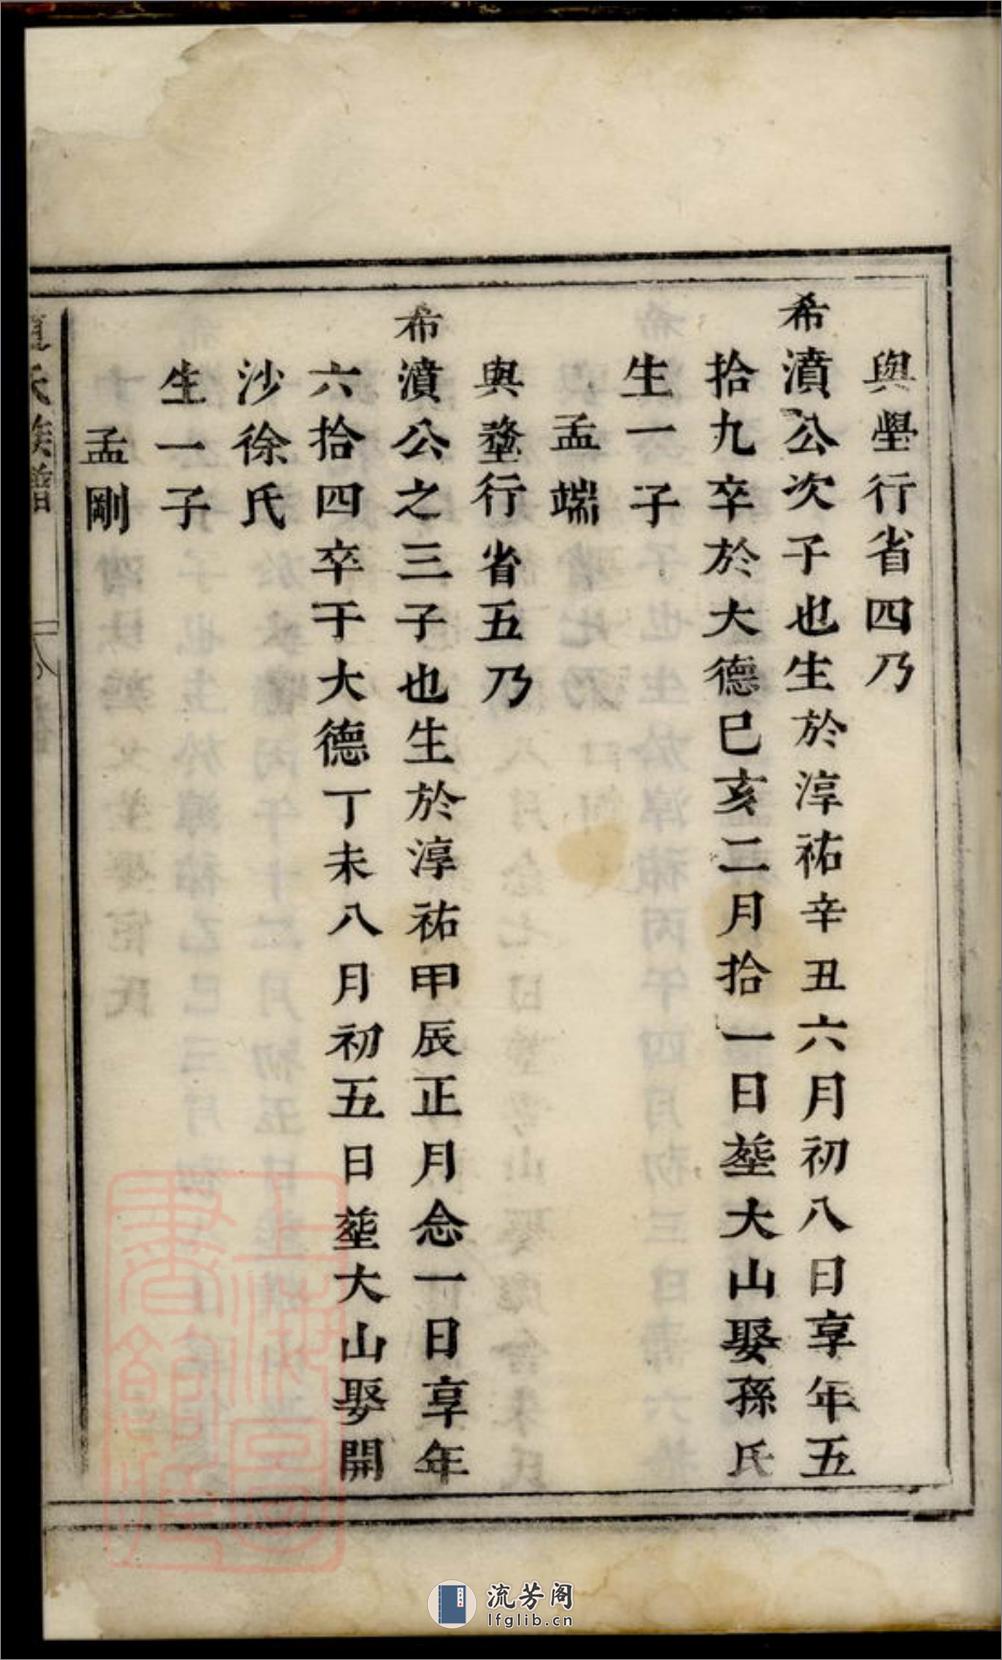 與壆行省四乃
希濆公次子也生於淳祐辛丑六月初八日享年五
拾九卒於大德巳亥二月拾一日塟大山娶孫氏
生一子
孟端
與行省五乃
希濆公之三子也生於淳祐甲辰正月念一日享年
六拾四卒于大德丁未八月初五日塟大山娶開
沙徐氏
生一子
孟剛
氏族譜
上海圖書館藏
流芳阁
lfglib.cn